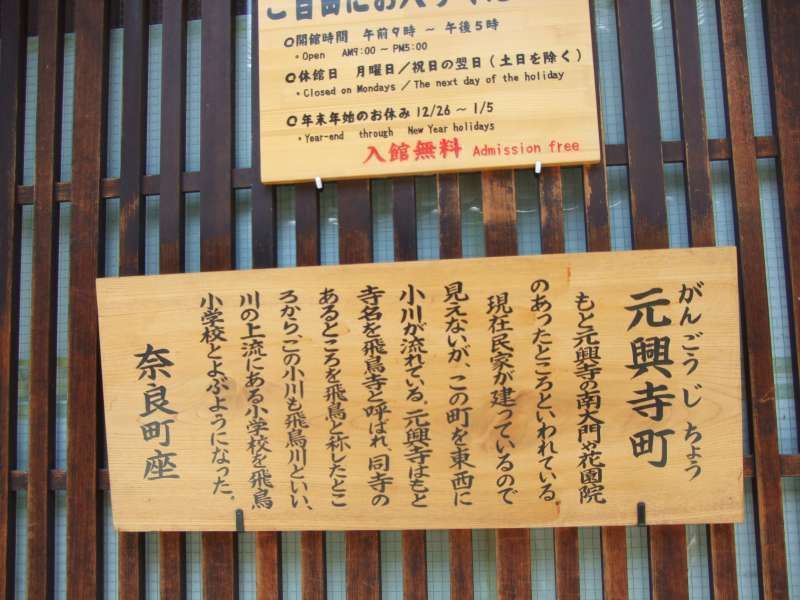 ご自由にお入りくだ
○開館時間 午前9時 ～ 午後5時
・Open AM9:00 ～ PM5:00
○休館日 月曜日／祝日の翌日（土日を除く）
・Closed on Mondays / The next day of the holiday
○年末年始のお休み 12/26 ～ 1/5
・Year-end through New Year holidays
入館無料 Admission free
がんごうじちょう
元興寺町
もと元興寺の南大門や花園院
のあったところといわれている。
現在民家が建っているので
見えないが、この町を東西に
小川が流れている。元興寺はもと
寺名を飛鳥寺と呼ばれ、同寺の
あるところを飛鳥と祢したとこ
ろから、この小川も飛鳥川といい、
川の上流にある小学校を飛鳥
小学校とよぶようになった。
奈良町座